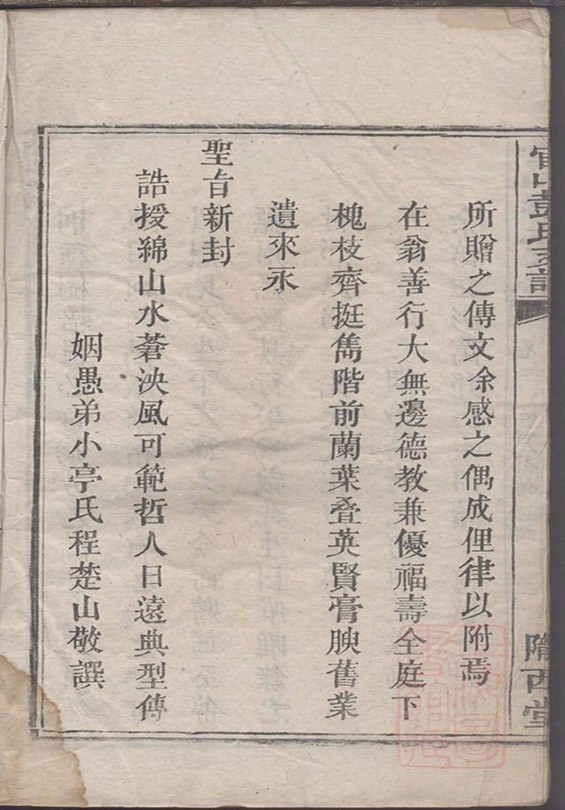 所贈之傳文余感之偶成俚律以附焉
在翁善行大無邊德教兼優福壽全庭下
槐枝齊挺雋階前蘭葉叠英賢膏腴舊業
遺來永
聖旨新封
誥授綿山水蒼泱風可範哲人日遠典型傳
姻愚弟小亭氏程楚山敬譔
彭氏支譜
隴西堂